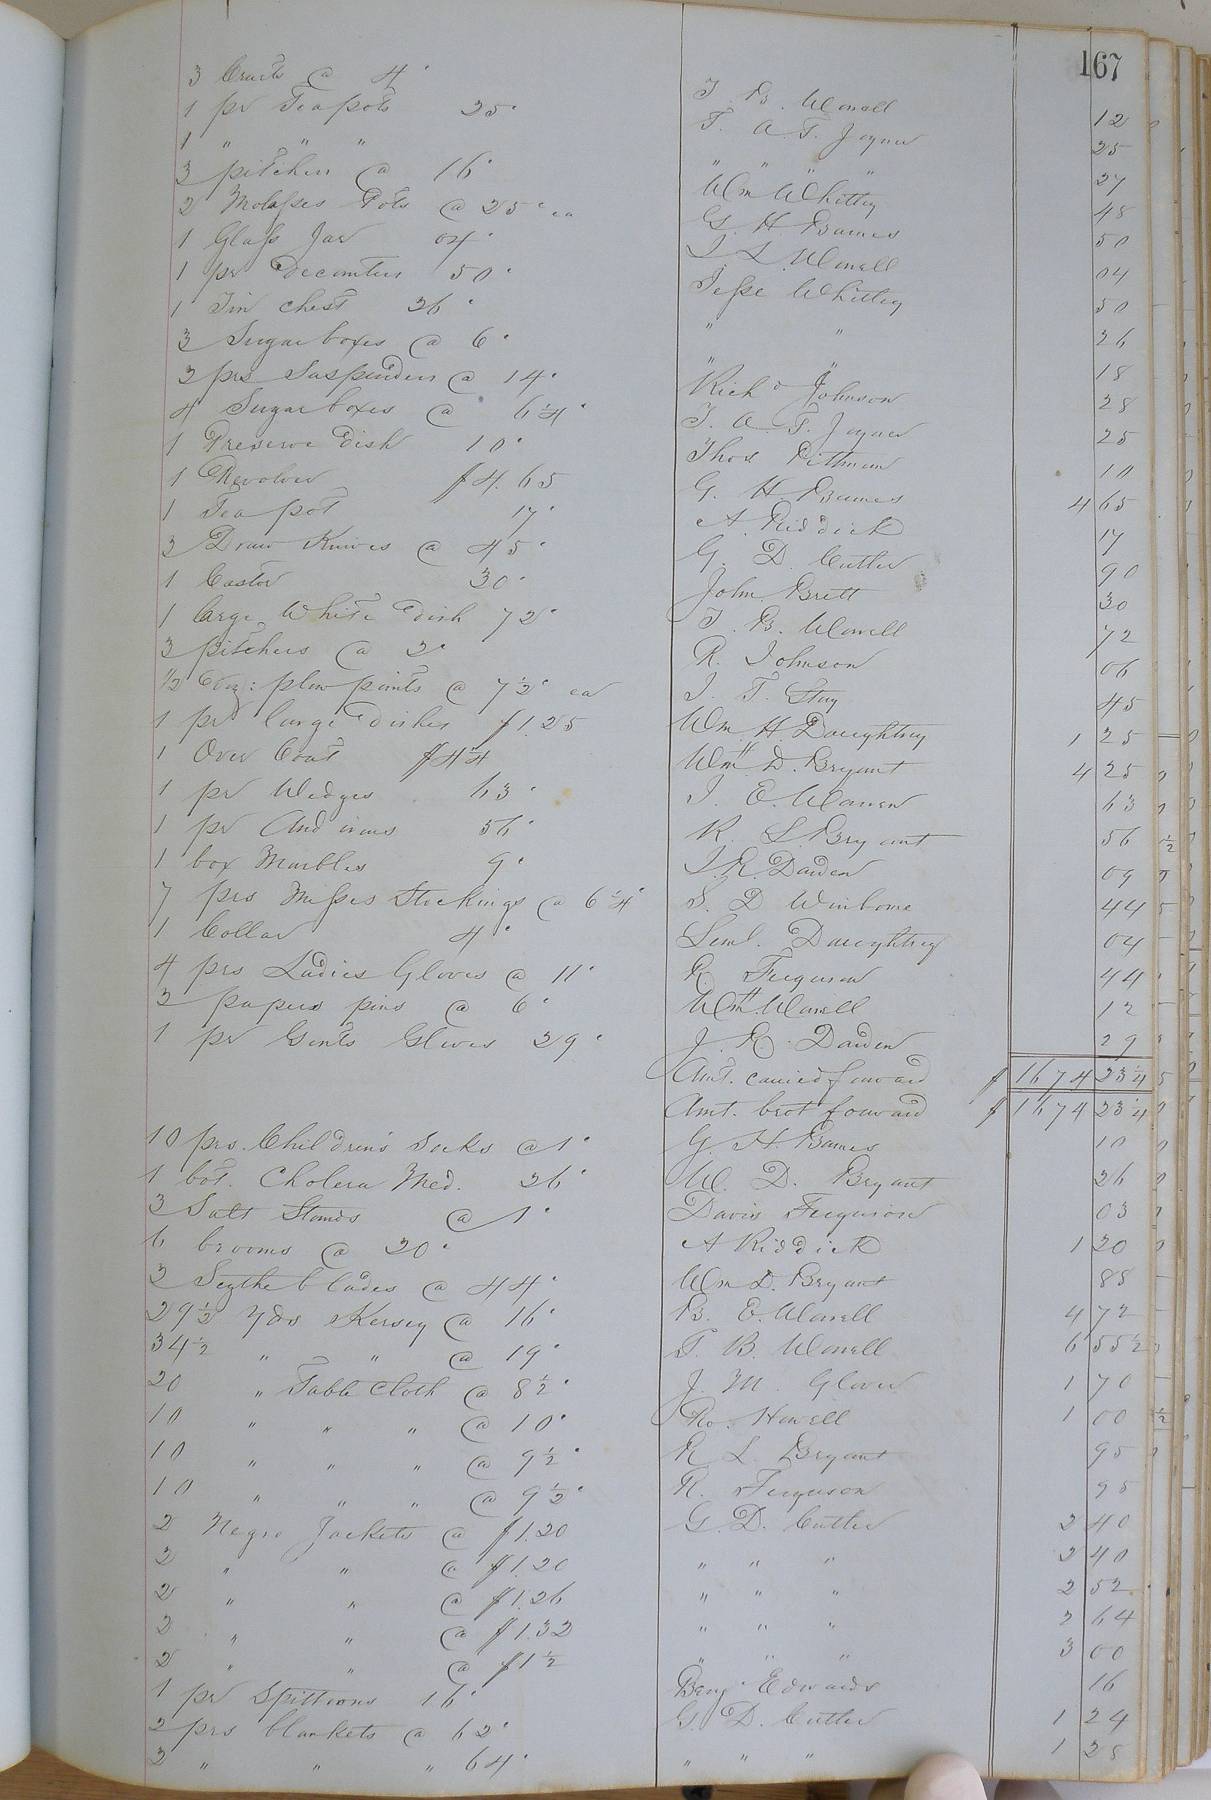 167
3 Cruets @ 4c T. B. Worrell 12
1 pr Tea pots 25c T. A. T. Joyner 25
1 " " " " " " 27
3 pitchers @ 16c Wm Whitley 48
2 Molasses Pots @ 25c ea G. H. Barnes 50
1 Glass Jar 04c J. L. Worrell 04
1 pr Decanters 50c Jesse Whitley 50
1 Tin chest 26c " " 26
3 Sugar boxes @ 6c " " 18
2 prs Suspenders @ 14c Richd Johnson 28
4 Sugar boxes @ 6 1/4c T. A. T. Joyner 25
1 Preserve Dish 10c Thos Pittman 10
1 Revolver $4.65 G. H. Barnes 4 65
1 Tea pot 17c A. Riddick 17
2 Draw Knives @ 45c G. D. Cutler 90
1 Castor 30c John Brett 30
1 large White Dish 72c T. B. Worrell 72
3 pitchers @ 2c R. Johnson 06
1/2 Doz: plow points @ 7 1/2c ea J. T. 45
1 pr large Dishes $1.25 Wm H. Daughtrey 1 25
1 Over Coat $4 1/4 Wm D. Bryant 4 25
1 pr Wedges 63c J. E. Warren 63
1 pr And irons 56c R. L. Bryant 56
1 box Marbles 9c J. R. Darden 09
7 prs Misses Stockings @ 6 1/4c S. D. Winborne 44
1 Collar 4c Leml. Daughtrey 04
4 prs Ladies Gloves @ 11c R. Ferguson 44
2 papers pins @ 6c Wm H. Worrell 12
1 pr Gents Gloves 29c J. R. Darden 29
Amt. carried forward $ 1674 23 1/4
Amt. brot forward $ 1674 23 1/4
10 prs. Children's Socks @ 1c G. H. Barnes 10
1 bot. Cholera Med. 26c W. D. Bryant 26
3 Salt Stands @ 1c Davis Ferguson 03
6 brooms @ 20c A Riddick 1 20
2 Scythe blades @ 44c Wm D. Bryant 88
29 1/2 yds Kersey @ 16c B. E. Worrell 4 72
34 1/2 " " @ 19c T. B. Worrell 6 55 1/2
20 " Table Cloth @ 8 1/2c J. M. Glover 1 70
10 " " " @ 10c Ro. Howell 1 00
10 " " " @ 9 1/2c R L. Bryant 95
10 " " " @ 9 1/2c R. Ferguson 95
2 Negro Jackets @ $1.20 G. D. Cutler 2 40
2 " " @ $1.20 " " " 2 40
2 " " @ $1.26 " " " 2 52
2 " " @ $1.32 " " " 2 64
2 " " @ $1 1/2 " " " 3 00
1 pr Spittoons 16c Benj. Edwards 16
2 prs blankets @ 62c G. D. Cutler 1 24
2 " " " 64c " " " 1 28